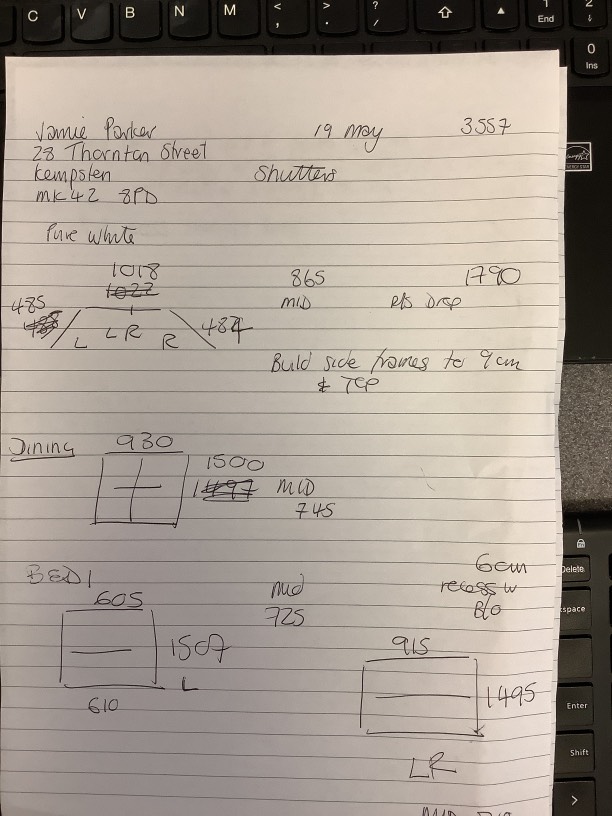 C V B N M < , > . ? / ⇧ ▲ 1 End 2 ↓
0 Ins
Jamie Parker 19 may 3557
28 Thornton Street
Kempsten Shutters
mk42 8PD
Pure White
1018 865 1790
1022 MID R/S Drop
485 L LR R 484
Build side frames to 9cm
& TOP
Dining 930
1500
1497 MID
745
BED 1 mid 6cm
605 725 recess w
B/O
1507 915
L 1495
610
LR
ENERGY STAR
Delete
Enter
Shift
>